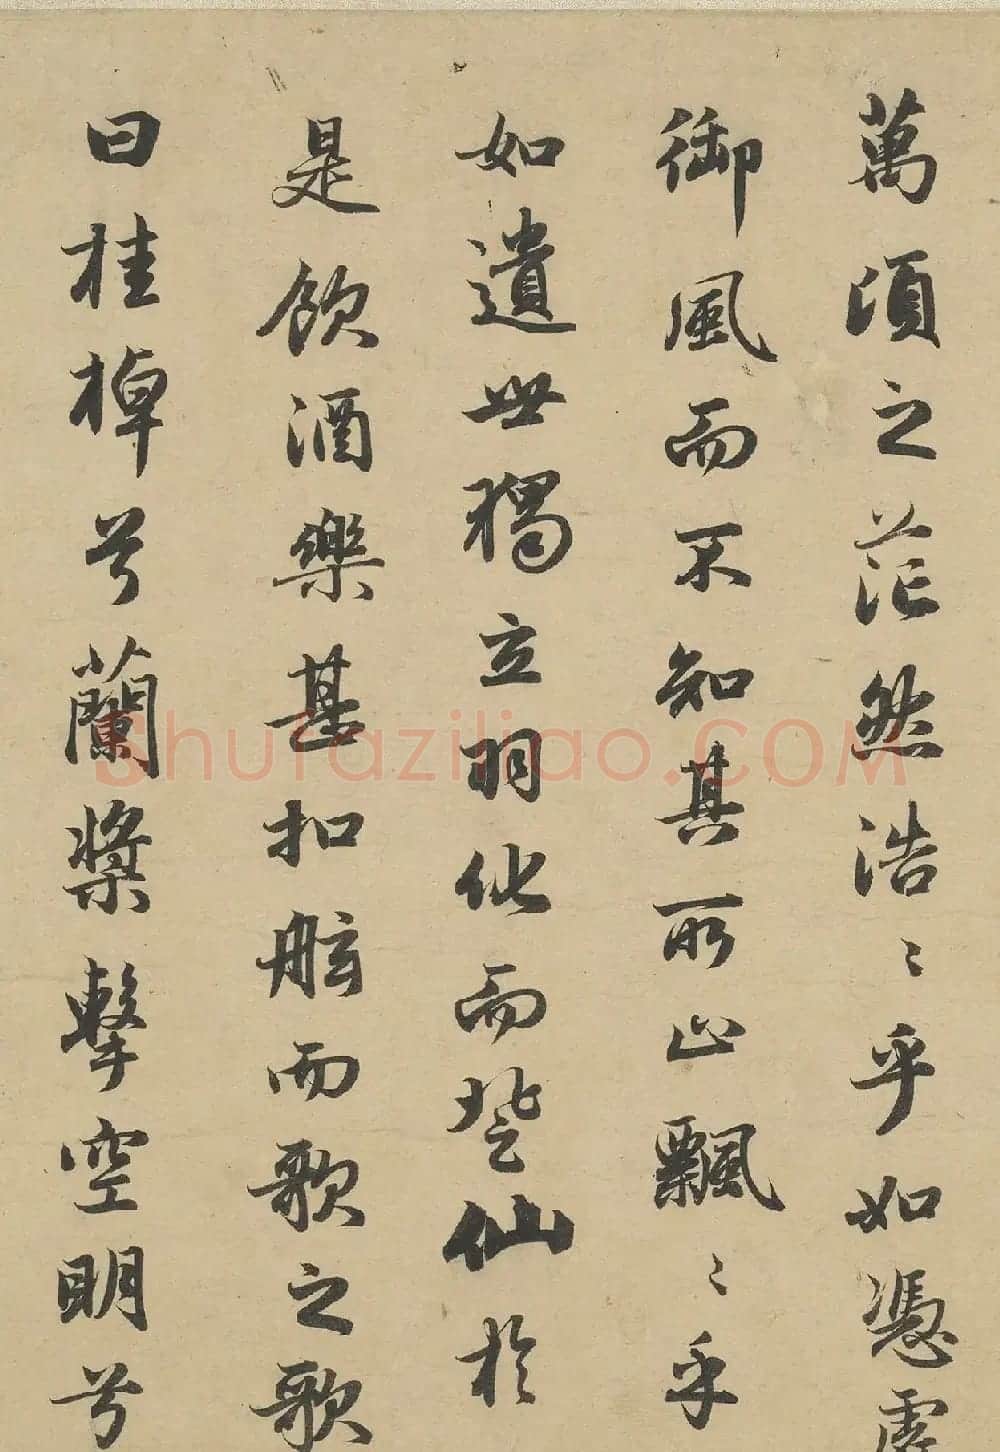 萬頃之茫然浩〻乎如憑虛
御風而不知其所止飄〻乎
如遺世獨立羽化而登仙於
是飲酒樂甚扣舷而歌之歌
曰桂棹兮蘭槳擊空明兮
Shufaziliao.COM